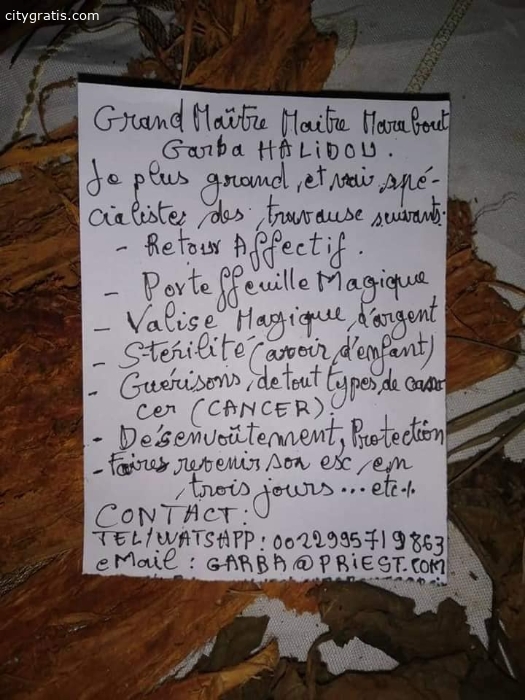 citygratis.com
Grand Maître Maitre Marabout
Garba HALIDOU.
Je plus grand, et vrai spé-
cialistes des travause suivants:
- Retour Affectif.
- Porteffeuille Magique
- Valise Magique d'argent
- Stérilité (avoir d'enfant)
- Guérisons de tout types de can
cer (CANCER).
- Désenvoûtement, Protection
- faires revenir son esc en
trois jours...etc.
CONTACT:
TEL/WATSAPP: 0022995719863
eMail: GARBA@PRIEST.COM